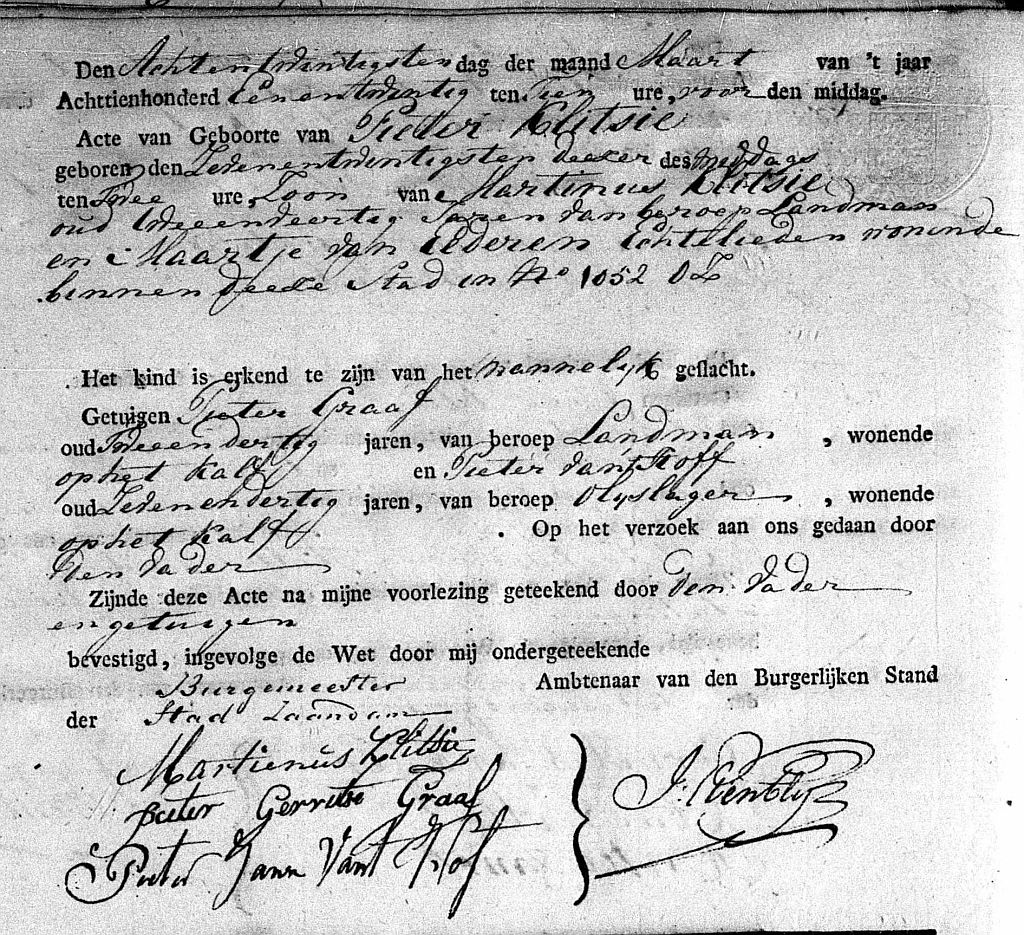 Den Achtentwintigsten dag der maand Maart van 't jaar
Achttienhonderd Eenentwintig ten Tien ure, voor den middag.
Acte van Geboorte van Pieter Klitsie
geboren den Zevenentwintigsten deezer des middags
ten Twee ure, Zoon van Martinus Klitsie
oud Tweeendertig Jaren van beroep Landman
en Maartje van Ederen Echtelieden woninde
binnen deeze Stad in No 1052 OZ
Het kind is erkend te zijn van het mannelyk geslacht.
Getuigen Pieter Graaf
oud Tweeendertig jaren, van beroep Landman, wonende
op het Kalf en Pieter van't Hoff
oud Zevenendertig jaren, van beroep Olyslager, wonende
op het Kalf. Op het verzoek aan ons gedaan door
den vader
Zijnde deze Acte na mijne voorlezing geteekend door den vader
en getuigen
bevestigd, ingevolge de Wet door mij ondergeteekende
Burgemeester Ambtenaar van den Burgerlijken Stand
der Stad Zaandam
Martienus Klitsie
Pieter Gerritse Graaf
Pieter Jann Vant Hof